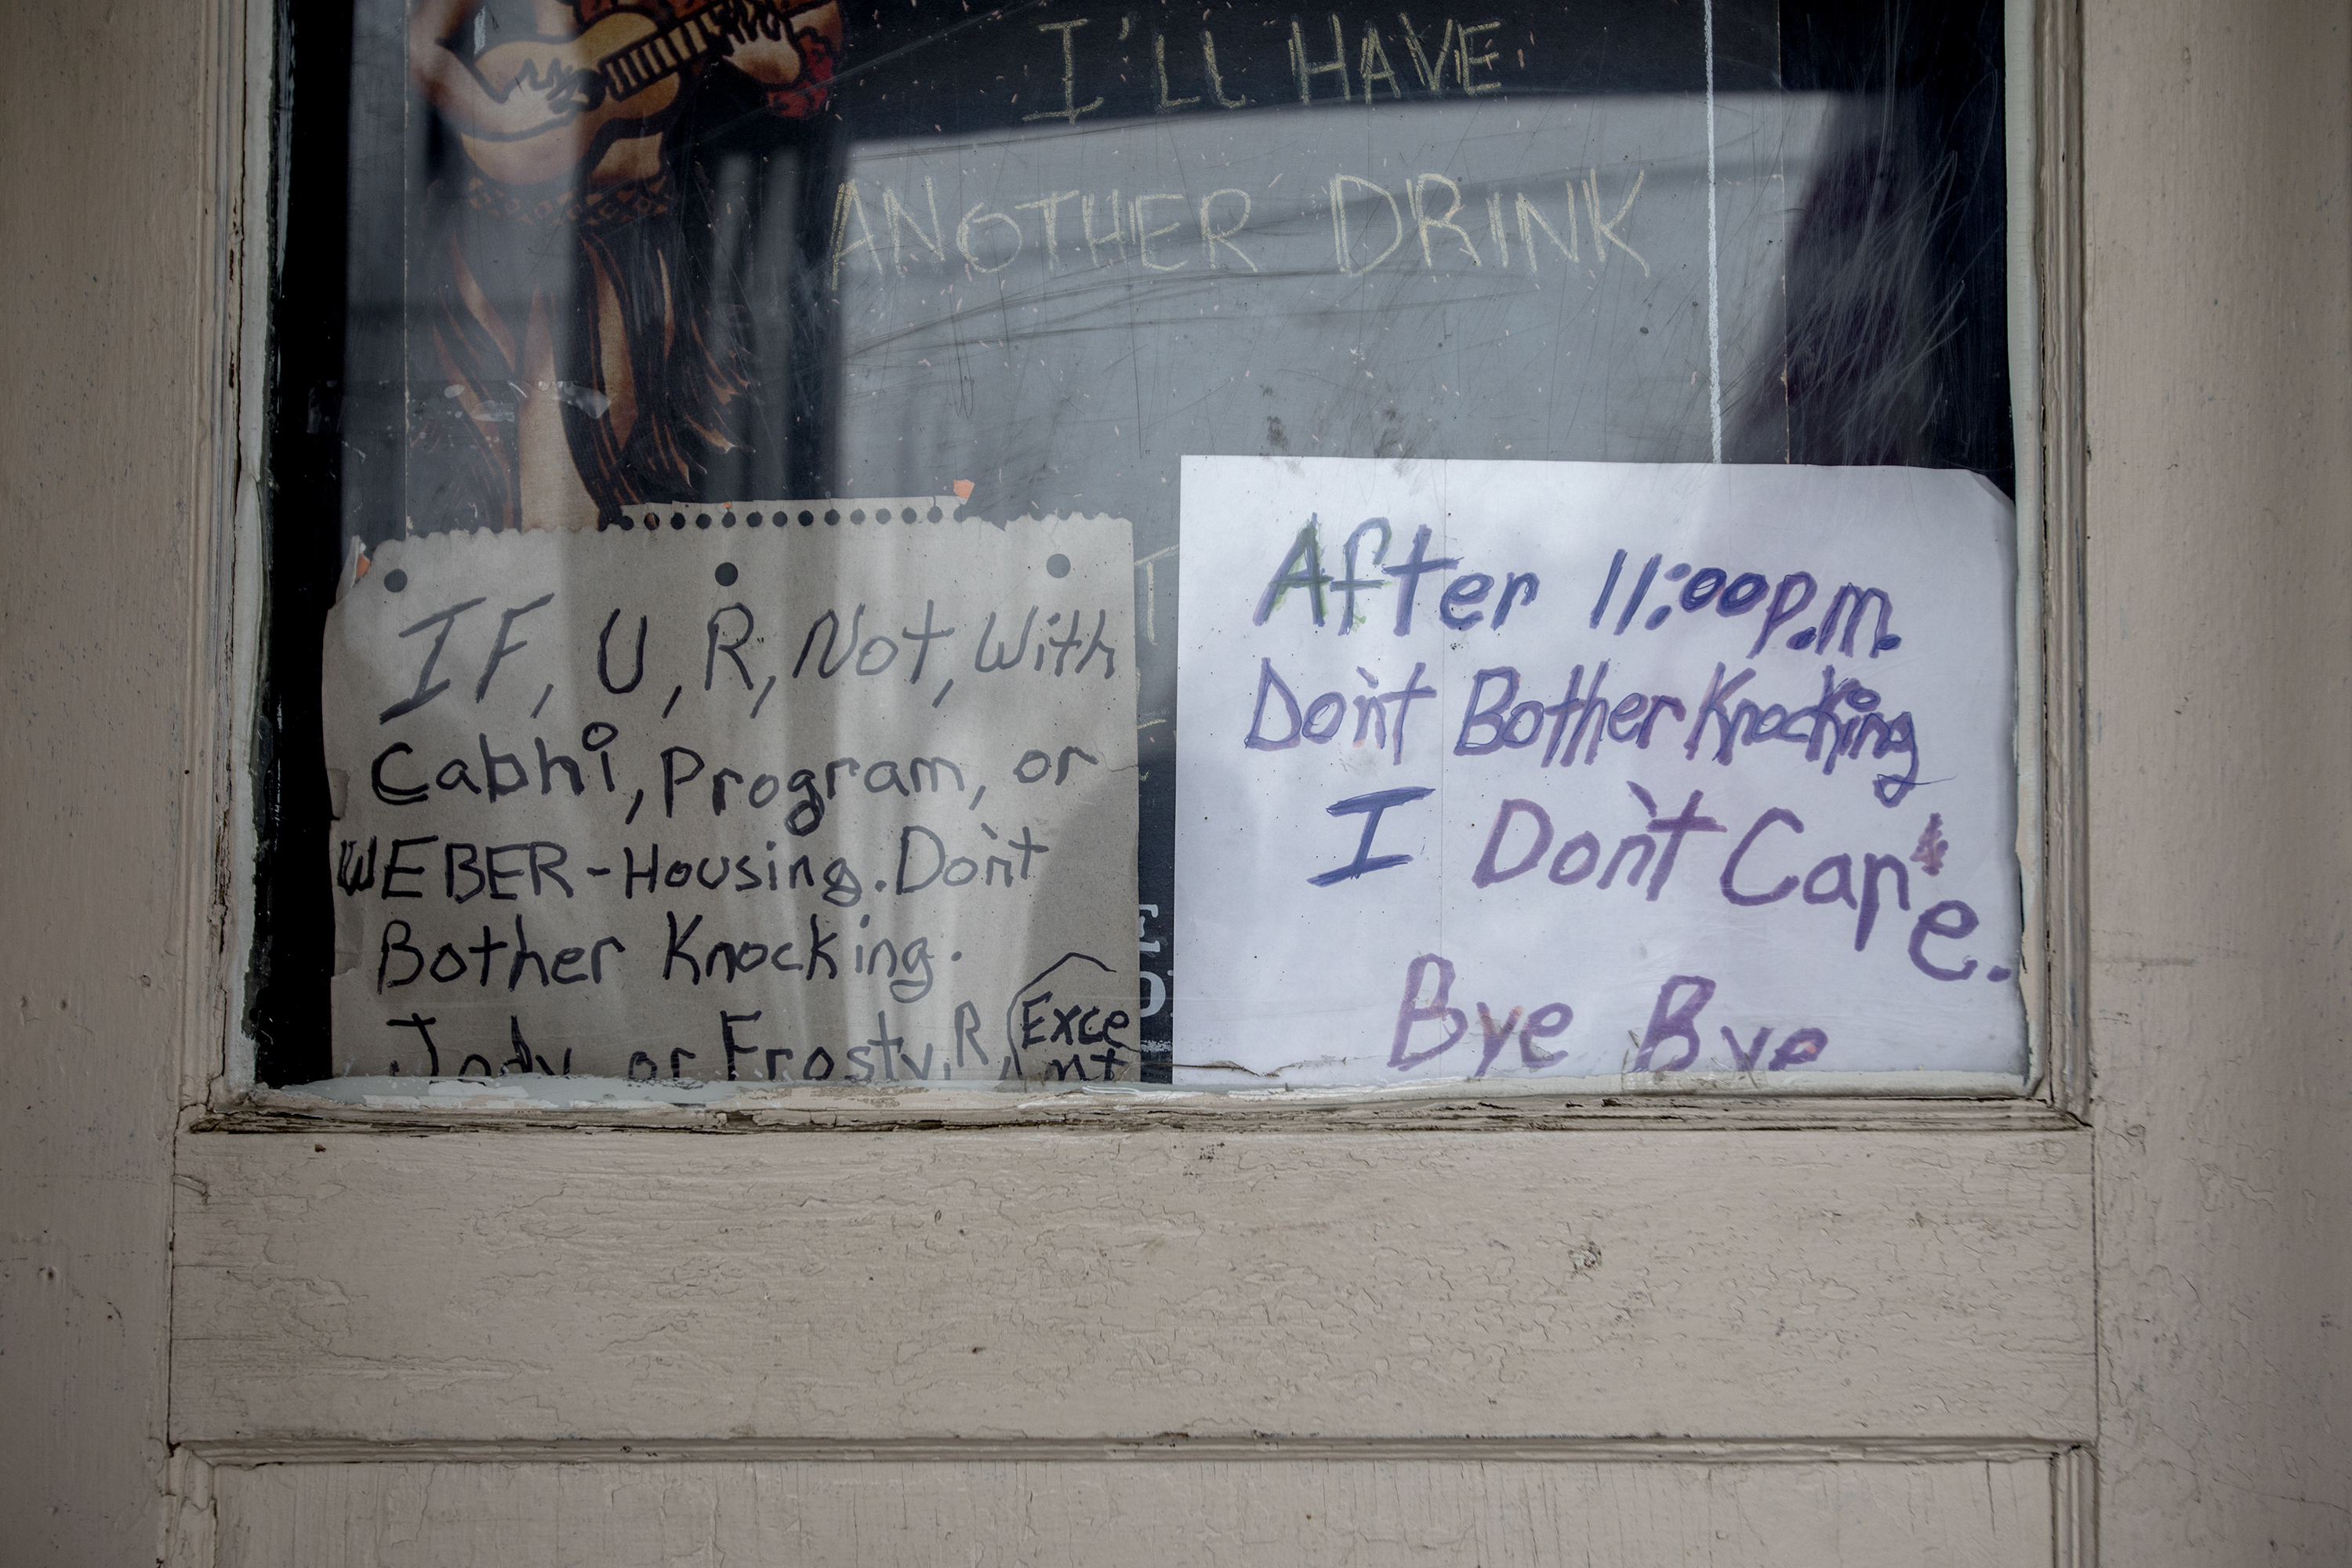 I'LL HAVE
ANOTHER DRINK
IF, U, R, Not, With
Cabhi, Program, or
WEBER-Housing. Don't
Bother Knocking.
Jody or Frosty, R,
After 11:00p.m.
Don't Bother Knocking
I Don't Care.
Bye Bye